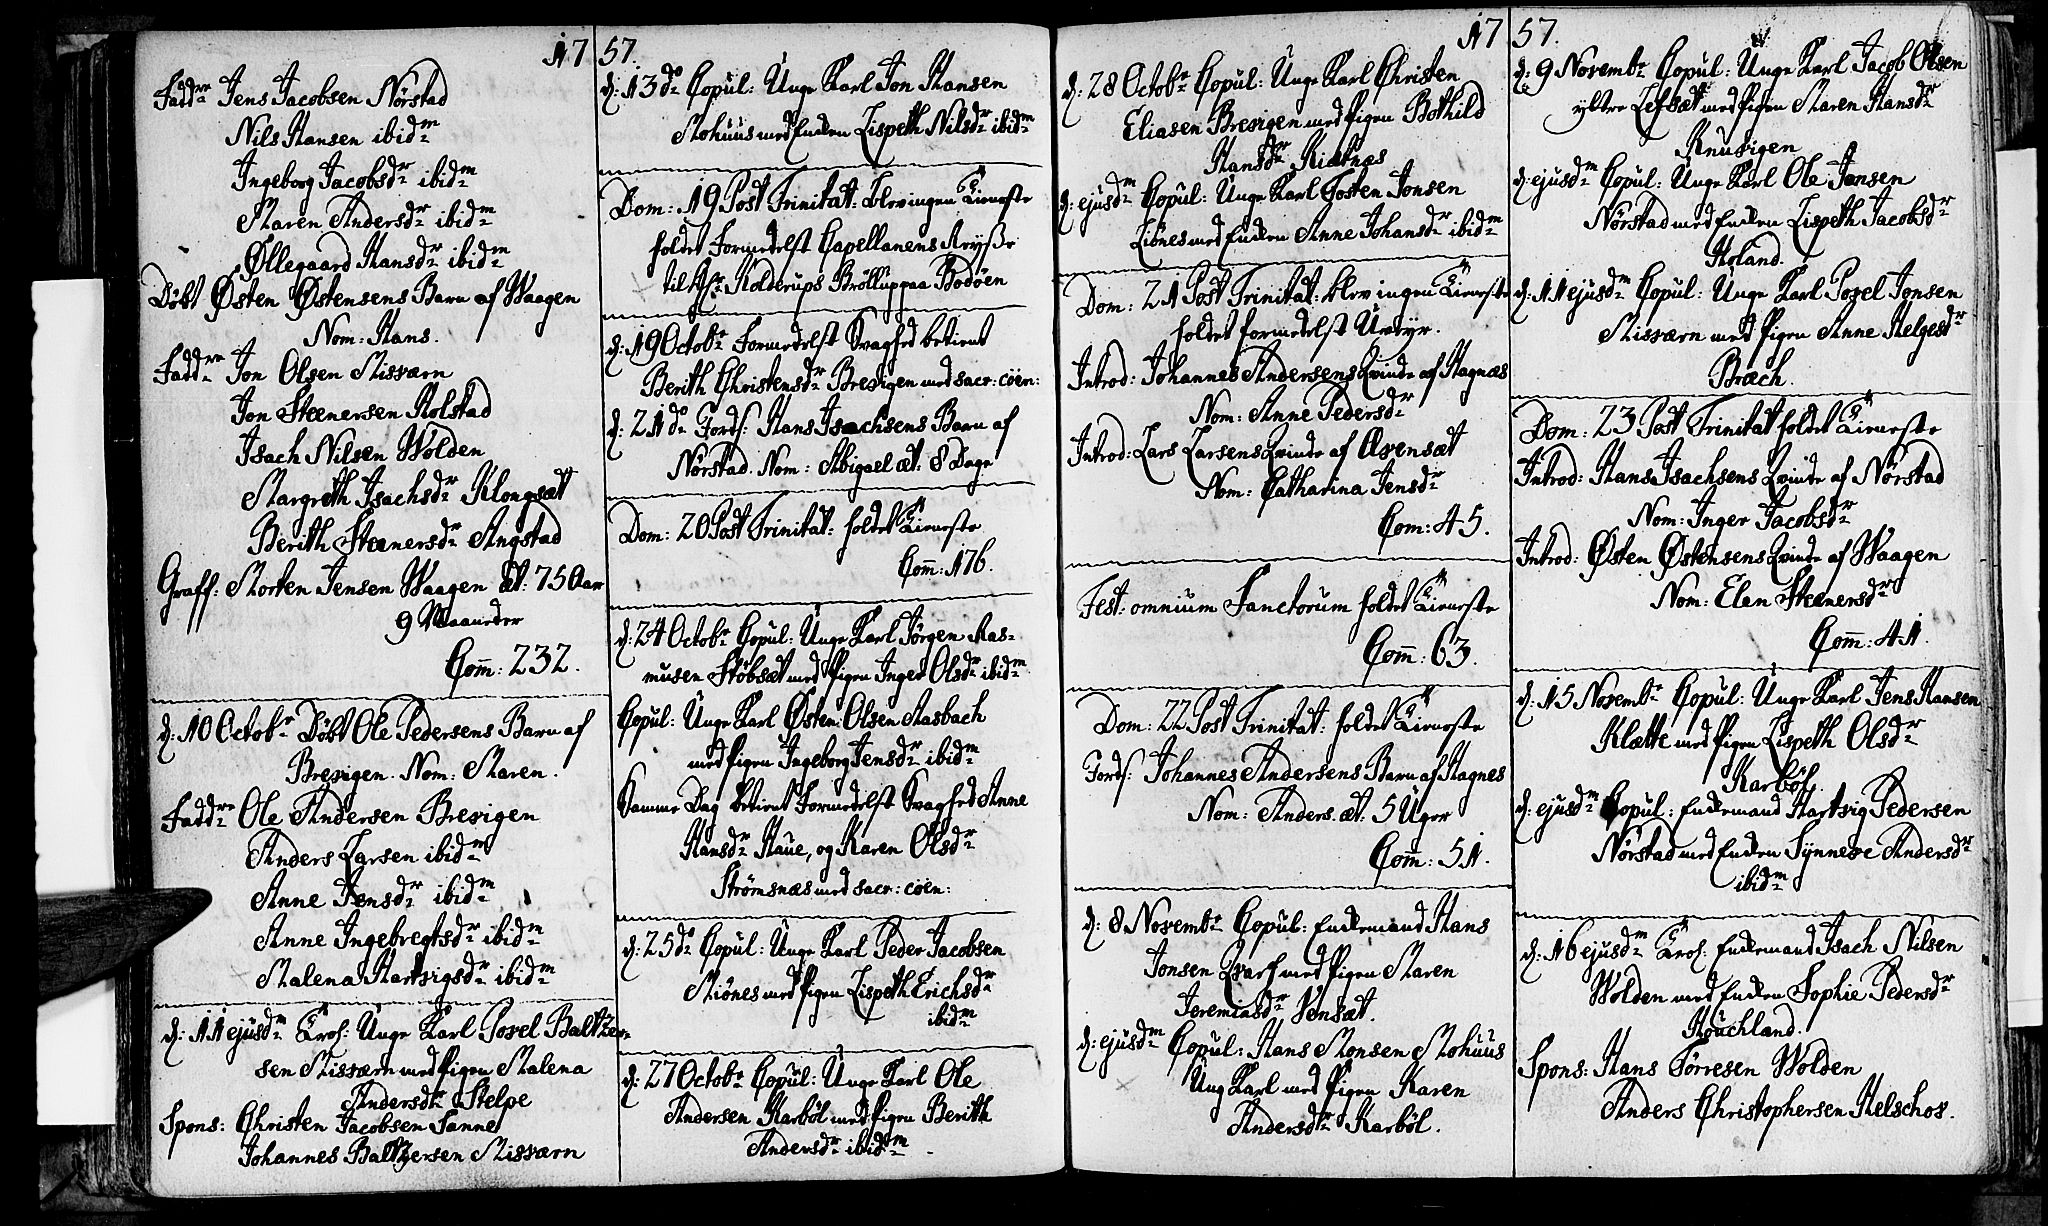 1757.
Fadd:re Jens Jacobsen Nørstad
Nils Hansen ibid:m
Ingeborg Jacobsd:r ibid:m
Maren Andersd:r ibid:m
Øllegaard Hansd:r ibid:m
Døbt Østen Østensens Barn af Waagen
Nom: Hans.
Fadd:re Jon Olsen Misværn
Jon Steenersen Rolstad
Isach Nilsen Wolden
Margreth Isachsd:r Klongsæt
Berith Steenersd:r Angstad
Graff: Morten Jensen Waagen æt: 75 Aar
9 Maaneder
Com̅: 232.
d: 10 Octob:r Døbt Ole Pedersens Barn af
Brevigen. Nom: Maren.
Fadd:re Ole Andersen Brevigen
Anders Larsen ibid:m
Anne Jensd:r ibid:m
Anne Ingebregtsd:r ibid:m
Malena Hartvigsd:r ibid:m
d: 11 ejusd:m Trol: Unge Karl Povel Baltzer-
sen Misværn med Pigen Malena
Andersd:r Stelpe
Spons: Christen Jacobsen Sanne
Johannes Baltzersen Misværn
d: 13 d:o Copul: Unge Karl Jon Hansen
Mohuus med Enken Lispeth Nilsd:r ibid:m
Dom: 19 Post Trinitat: blev ingen Tieneste
holdet formedelst Capellanens Reyse
til Hr: Holderups Brøllup paa Bodøen
d: 19 Octob:r Formedelst Svaghed betient
Berith Christensd:r Brevigen med sacr: coen:
d: 21 d:o Jords: Hans Isachsens Barn af
Nørstad. Nom: Abigael æt: 8 Dage
Dom: 20 Post Trinitat: holdet Tieneste
Com̅: 176.
d: 24 Octob:r Copul: Unge Karl Jørgen Ras-
musen Støbsæt med Pigen Inger Olsd:r ibid:m
Copul: Unge Karl Østen Olsen Aasbach
med Pigen Ingeborg Jensd:r ibid:m
Samme Dag betient Formedelst Svaghed Anne
Hansd:r Haue, og Karen Olsd:r
Strømsnæs med sacr: coen:
d: 25 d:o Copul: Unge Karl Peder Jacobsen
Miönes med Pigen Lispeth Erichsd:r
ibid:m
d: 27 Octob:r Copul: Unge Karl Ole
Andersen Karbøl med Pigen Berith
Andersd:r ibid:m
1757.
d: 28 Octob:r Copul: Unge Karl Christen
Eliasen Brevigen med Pigen Bothild
Hansd:r Kietnæs
d: ejusd:m Copul: Unge Karl Tosten Jonsen
Liönes med Enken Anne Johansd:r ibid:m
Dom: 21 Post Trinitat: blev ingen Tieneste
holdet formedelst Uveyr.
Introd: Johannes Andersens Qvinde af Hagnæs
Nom: Anne Pedersd:r
Introd: Lars Larsens Qvinde af Evensæt
Nom: Catharina Jensd:r
Com: 45.
Fest: omnium Sanctorum holdet Tieneste
Com̅: 63.
Dom: 22 Post Trinitat: holdet Tieneste
Jords: Johannes Andersens Barn af Hagnes
Nom: Anders. æt: 5 Uger
Com̅: 51.
d: 8 Novemb:r Copul: Enkemand Hans
Jonsen Qvarf med Pigen Maren
Jeremiasd:r Vensæt.
d: ejusd:m Copul: Hans Monsen Mohuus
Ung Karl med Pigen Karen
Andersd:r Karbøl.
d: 9 Novemb:r Copul: Unge Karl Jacob Olsen
yttre Lefsæt med Pigen Maren Hansd:r
Knuvigen
d: ejusd:m Copul: Unge Karl Ole Jensen
Nørstad med Enken Lispeth Jacobsd:r
Holand.
d: 11 ejusd:m Copul: Unge Karl Povel Jonsen
Misværn med Pigen Anne Helgesd:r
Bræch.
Dom: 23 Post Trinitat holdet Tieneste
Introd: Hans Isachsens Qvinde af Nørstad
Nom: Inger Jacobsd:r
Introd: Østen Østensens Qvinde af Waagen
Nom: Elen Steenersd:r
Com̅: 41.
d: 15 Novemb:r Copul: Unge Karl Jens Hansen
Klætte med Pigen Lispeth Olsd:r
Karbøl.
d: ejusd:m Copul: Enkemand Hartvig Pedersen
Nørstad med Enken Synneve Andersd:r
ibid:m
d: 16 ejusd:m Trol: Enkemand Isach Nilsen
Wolden med Enken Sophie Pedersd:r
Houchland.
Spons: Hans Tørresen Wolden
Anders Christophersen Helschov.